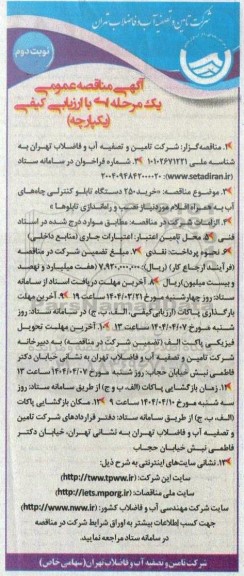 شرکت تامین و تصفیه آب و فاضلاب تهران
نوبت دوم
آگهی مناقصه عمومی
یک مرحله ای با ارزیابی کیفی
(یکپارچه)
۱. مناقصه گزار: شرکت تامین و تصفیه آب و فاضلاب تهران به
شناسه ملی ۱۰۱۰۲۶۷۱۲۲۱ ۲. شماره فراخوان در سامانه ستاد
(www.setadiran.ir): ۲۰۰۴۰۹۴۸۴۲۰۰۰۰۲۰
۳. موضوع مناقصه: «خرید ۲۵۰ دستگاه تابلو کنترلی چاه‌های
آب به همراه اقلام مورد نیاز نصب و راه‌اندازی تابلوها»
۴. الزامات شرکت در مناقصه: مطابق موارد درج شده در اسناد
فنی ۵. محل تامین اعتبار: اعتبارات جاری (منابع داخلی)
۶. نحوه پرداخت: نقدی ۷. مبلغ تضمین شرکت در مناقصه
(فرآیند ارجاع کار) (ریال): ۷,۹۲۰,۰۰۰,۰۰۰ (هفت میلیارد و نهصد
و بیست میلیون) ریال ۸. آخرین مهلت دریافت اسناد از سامانه
ستاد: روز چهارشنبه مورخ ۱۴۰۴/۰۳/۲۱ ساعت ۱۹ ۹. آخرین مهلت
بارگذاری پاکات (ارزیابی کیفی، الف، ب، ج) در سامانه ستاد: روز
شنبه مورخ ۱۴۰۴/۰۴/۰۷ ساعت ۱۳ ۱۰. آخرین مهلت تحویل
فیزیکی پاکت الف (تضمین شرکت در مناقصه) به دبیرخانه
شرکت تامین و تصفیه آب و فاضلاب تهران به نشانی خیابان دکتر
فاطمی نبش خیابان حجاب روز شنبه مورخ ۱۴۰۴/۰۴/۰۷ ساعت ۱۳
۱۱. زمان بازگشایی پاکات (الف، ب و ج) از طریق سامانه ستاد: روز
سه شنبه مورخ ۱۴۰۴/۰۴/۱۰ ساعت ۹ ۱۲. مکان بازگشایی پاکات
(الف، ب، ج) از طریق سامانه ستاد: دفتر قراردادهای شرکت تامین
و تصفیه آب و فاضلاب تهران به نشانی تهران، خیابان دکتر
فاطمی نبش خیابان حجاب
۱۳. نشانی سایت‌های اینترنتی به شرح ذیل:
سایت این شرکت: (http://tww.tpww.ir)
سایت ملی مناقصات: (http://iets.mporg.ir)
سایت شرکت مهندسی آب و فاضلاب کشور: (http://www.nww.ir)
جهت کسب اطلاعات بیشتر به اوراق شرایط شرکت در مناقصه
در سامانه ستاد مراجعه نمایید.
شرکت تامین و تصفیه آب و فاضلاب تهران (سهامی خاص)